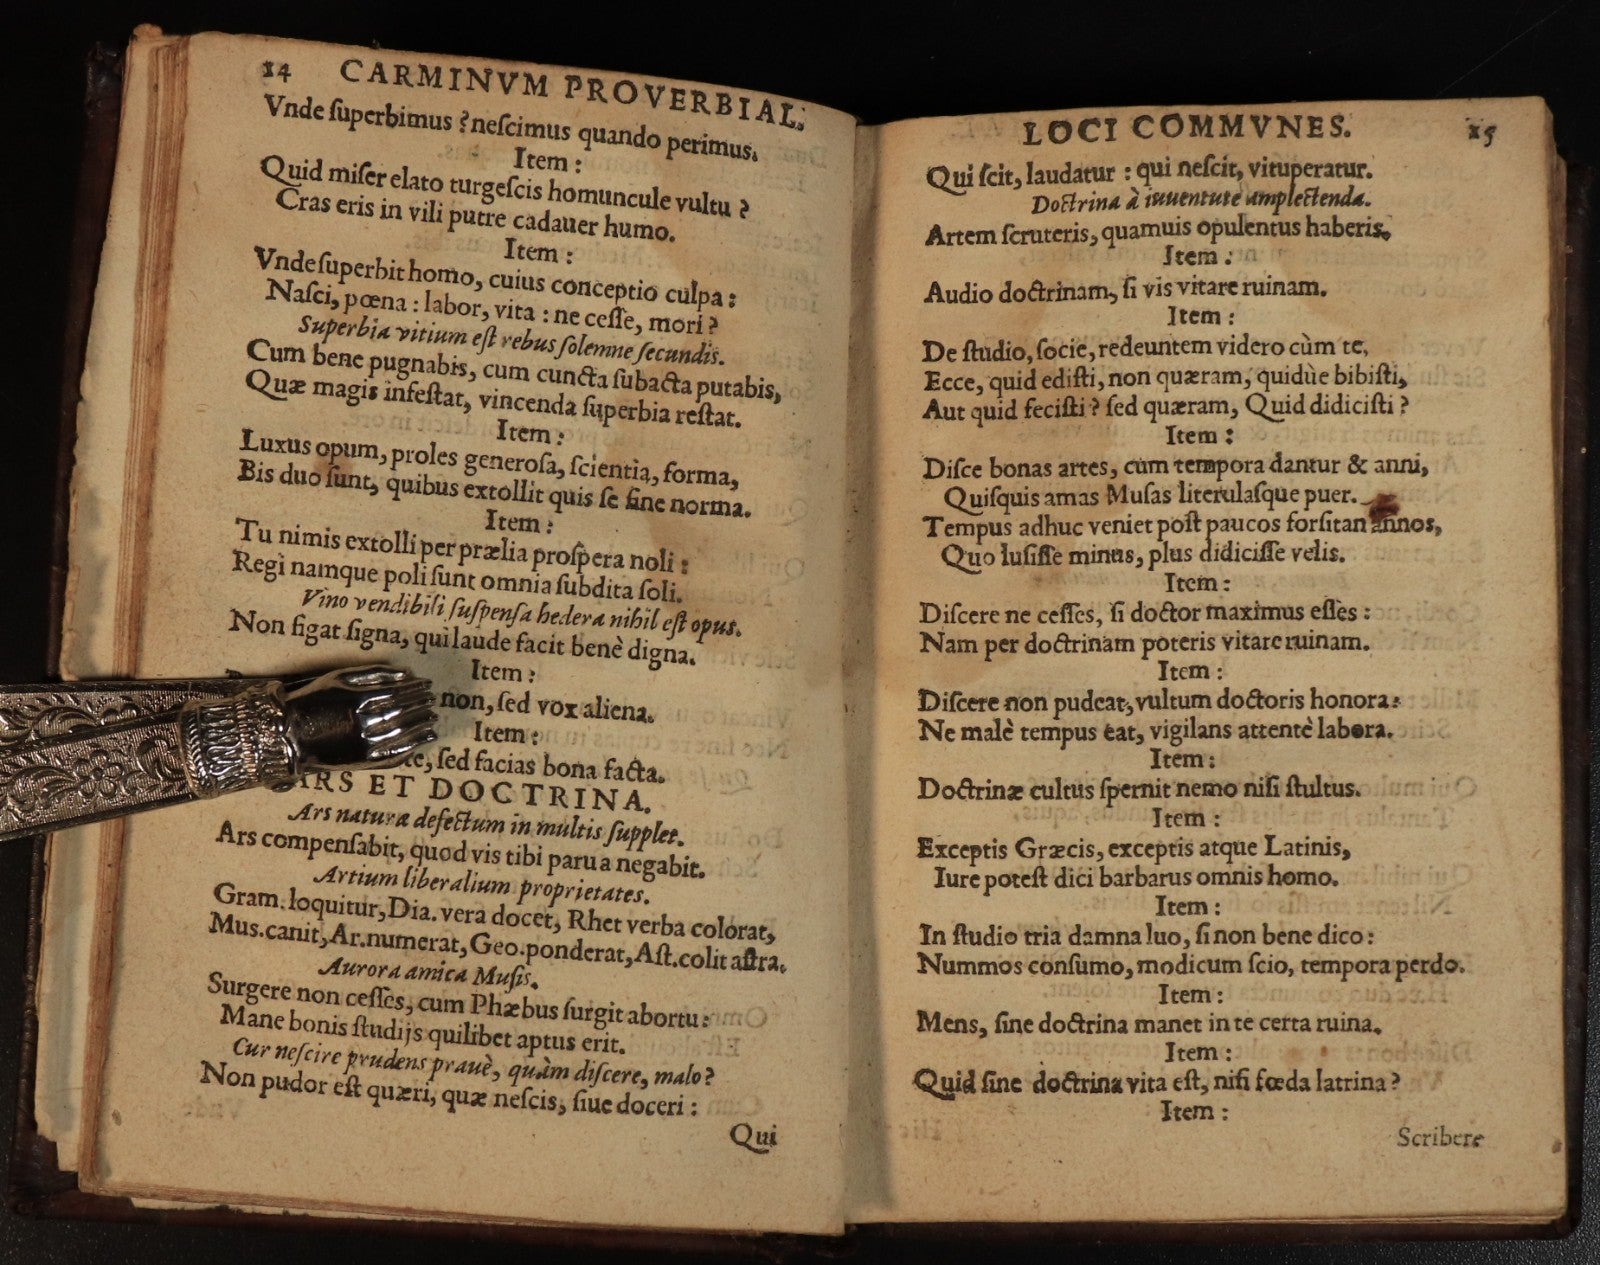 14 CARMINVM PROVERBIAL.
Vnde ſuperbimus ? neſcimus quando perimus.
Item :
Quid miſer elato turgeſcis homuncule vultu ?
Cras eris in vili putre cadauer humo.
Item :
Vnde ſuperbit homo, cuius conceptio culpa :
Naſci, pœna : labor, vita : ne ceſſe, mori ?
Superbia vitium eſt rebus ſolemne ſecundis.
Cum bene pugnabis, cum cuncta ſubacta putabis,
Quæ magis infeſtat, vincenda ſuperbia reſtat.
Item :
Luxus opum, proles generoſa, ſcientia, forma,
Bis duo ſunt, quibus extollit quis ſe ſine norma.
Item :
Tu nimis extolli per prælia proſpera noli :
Regi namque poli ſunt omnia ſubdita ſoli.
Vino vendibili ſuſpenſa hedera nihil eſt opus.
Non figat ſigna, qui laude facit benè digna.
Item :
non, ſed vox aliena.
Item :
te, ſed facias bona facta.
ARS ET DOCTRINA.
Ars naturæ defectum in multis ſupplet.
Ars compenſabit, quod vis tibi parua negabit.
Artium liberalium proprietates.
Gram. loquitur, Dia. vera docet, Rhet verba colorat,
Mus. canit, Ar. numerat, Geo. ponderat, Aſt. colit aſtra.
Aurora amica Muſis.
Surgere non ceſſes, cum Phæbus ſurgit abortu :
Mane bonis ſtudijs quilibet aptus erit.
Cur neſcire prudens prauè, quàm diſcere, malo ?
Non pudor eſt quæri, quæ neſcis, ſiue doceri :
Qui
LOCI COMMVNES. 15
Qui ſcit, laudatur : qui neſcit, vituperatur.
Doctrina à iuuentute amplectenda.
Artem ſcruteris, quamuis opulentus haberis.
Item :
Audio doctrinam, ſi vis vitare ruinam.
Item :
De ſtudio, ſocie, redeuntem videro cùm te,
Ecce, quid ediſti, non quæram, quidùe bibiſti,
Aut quid feciſti ? ſed quæram, Quid didiciſti ?
Item :
Diſce bonas artes, cum tempora dantur & anni,
Quiſquis amas Muſas literulaſque puer.
Tempus adhuc veniet poſt paucos forſitan annos,
Quo luſiſſe minus, plus didiciſſe velis.
Item :
Diſcere ne ceſſes, ſi doctor maximus eſſes :
Nam per doctrinam poteris vitare ruinam.
Item :
Diſcere non pudeat, vultum doctoris honora :
Ne malè tempus eat, vigilans attentè labora.
Item :
Doctrinæ cultus ſpernit nemo niſi ſtultus.
Item :
Exceptis Græcis, exceptis atque Latinis,
Iure poteſt dici barbarus omnis homo.
Item :
In ſtudio tria damna luo, ſi non bene dico :
Nummos conſumo, modicum ſcio, tempora perdo.
Item :
Mens, ſine doctrina manet in te certa ruina.
Item :
Quid ſine doctrina vita eſt, niſi fœda latrina ?
Item :
Scribere